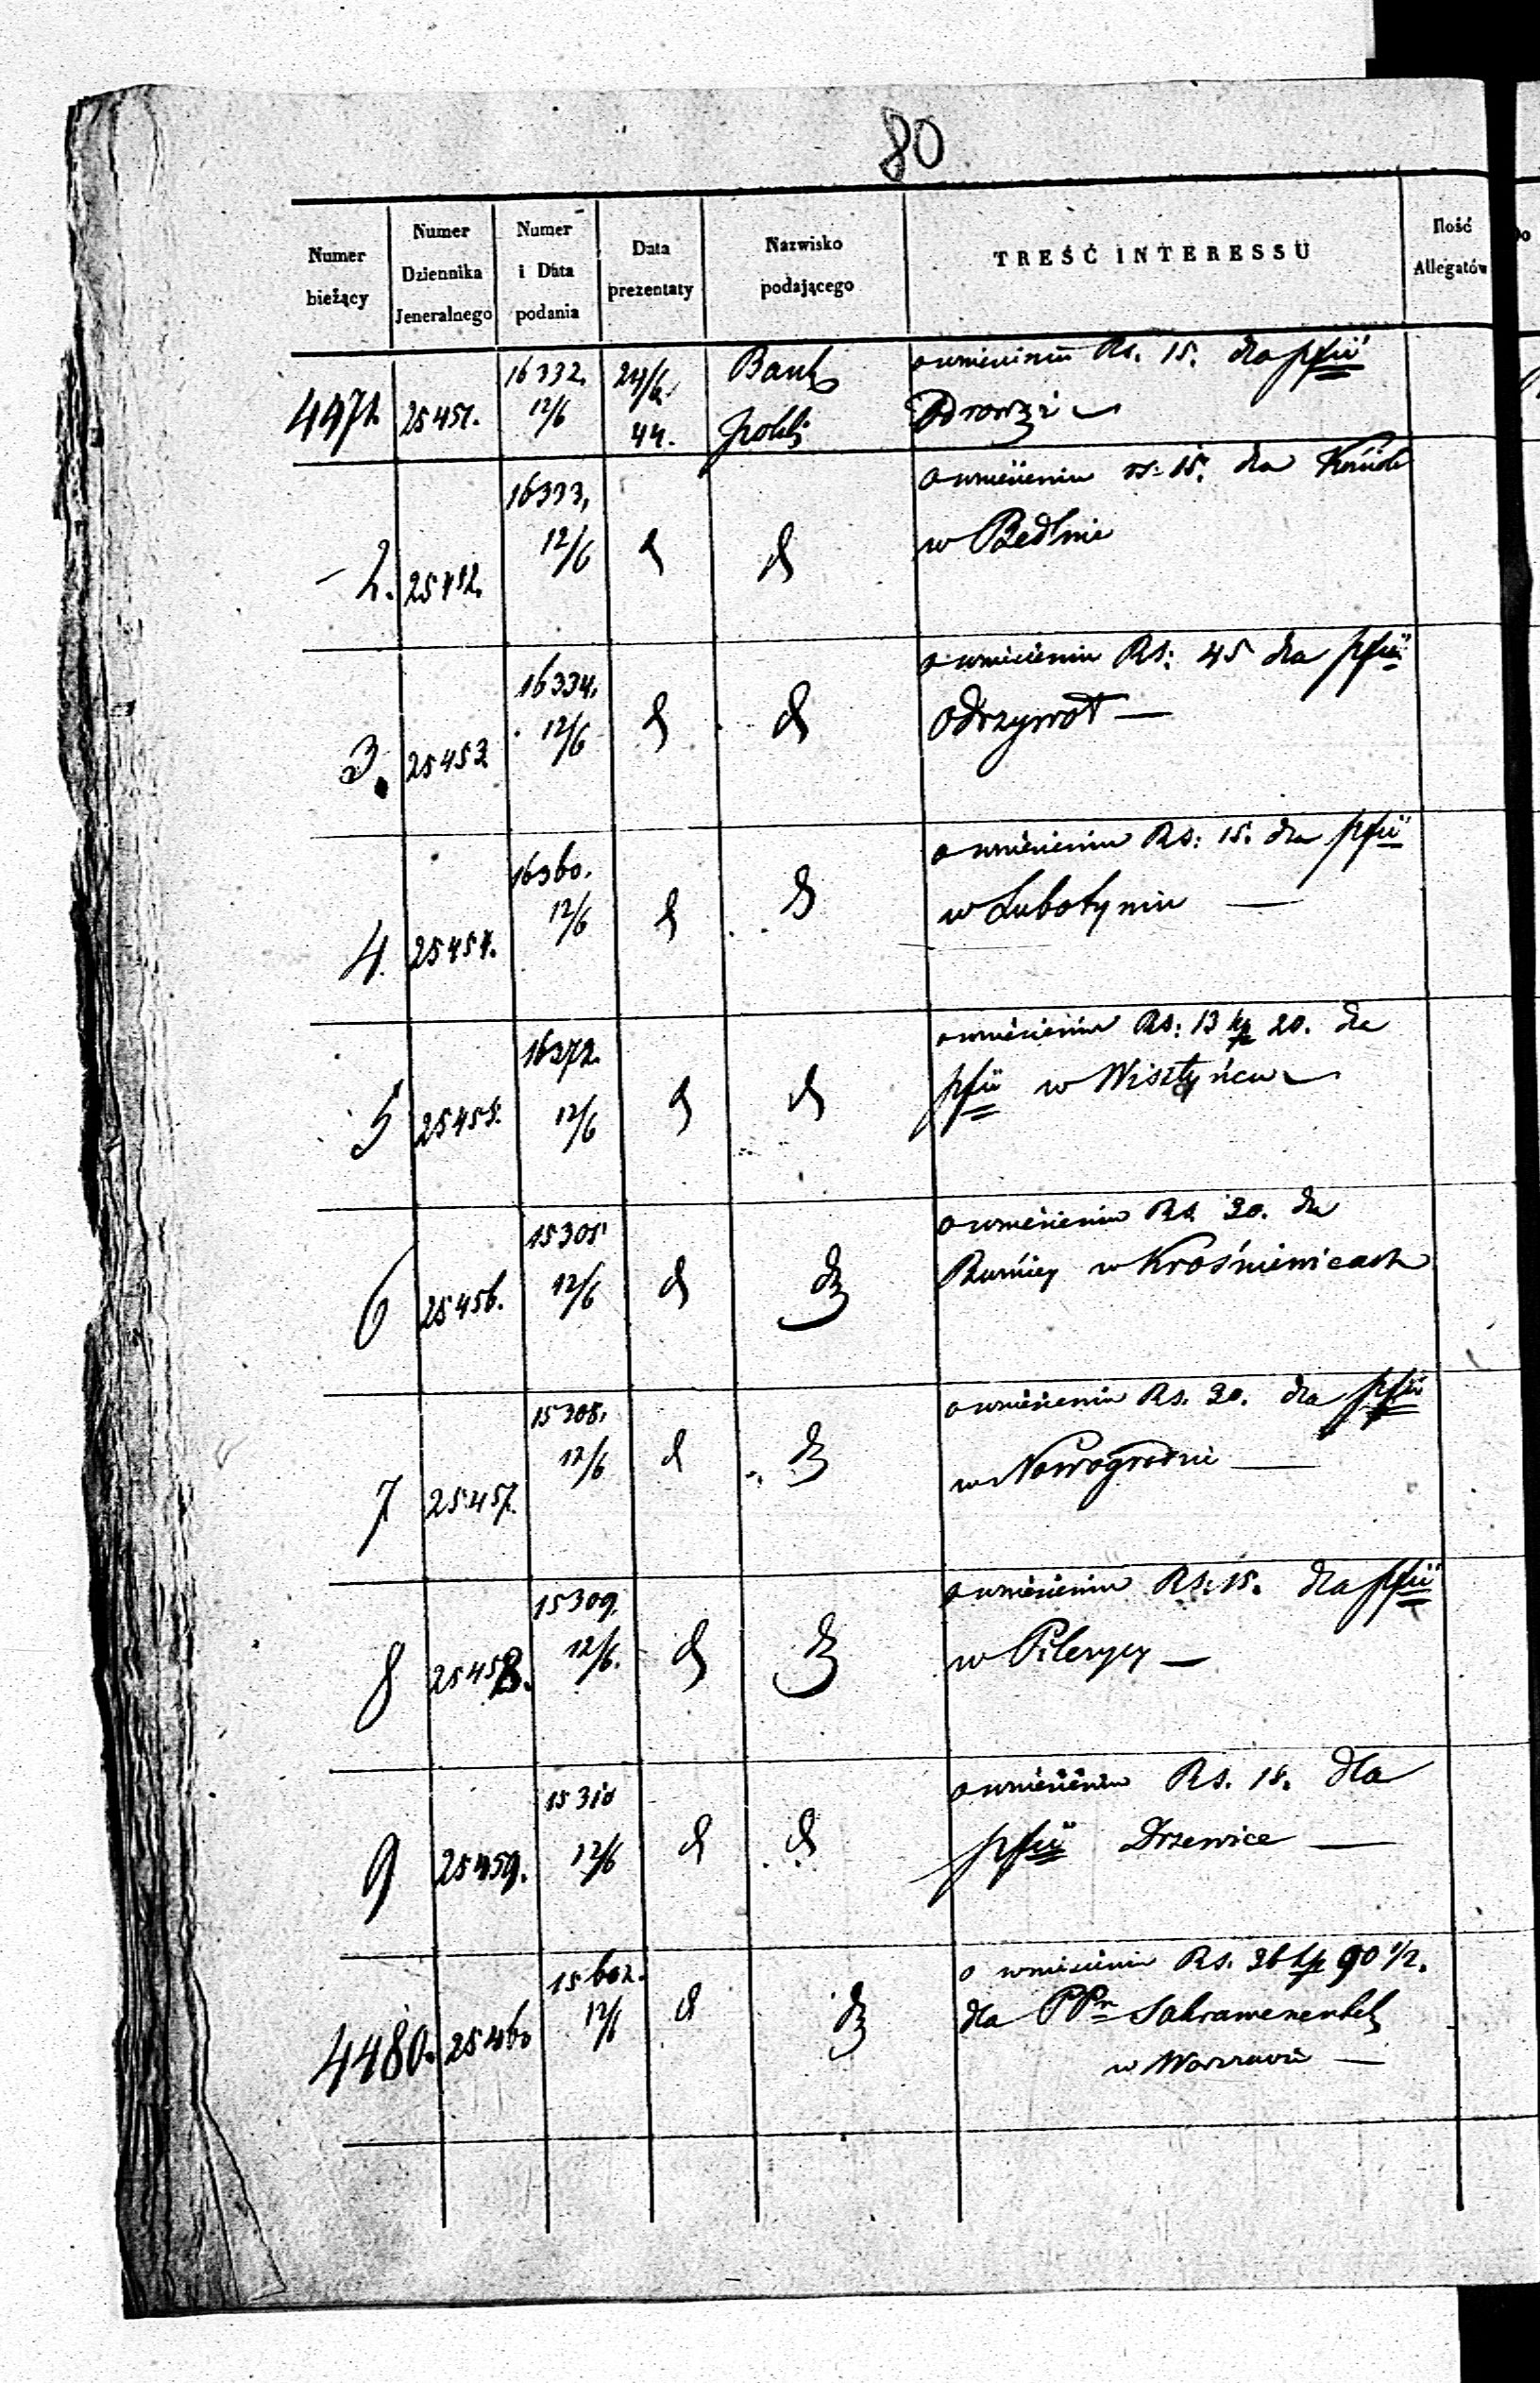 80
Numer bieżący
Numer Dziennika Jeneralnego
Numer i Data podania
Data prezentaty
Nazwisko podającego
TREŚĆ INTERESSU
Ilość Allegatów
4471. 25451. 16332. 12/6 24/6 44. Bank Polski o wniesieniu Rs. 15. dla pfii
Odrowąż
2. 25452. 16333. 12/6 d d o wniesieniu rs: 15. dla Kościoła
w Bedlnie
3. 25453 16334. 12/6 d d o wniesieniu Rs: 45 dla pfii
Odrzywoł —
4. 25454. 16360. 12/6 d d o wniesieniu Rs: 15. dla pfii
w Lubotyniu —
5 25455. 16372. 12/6 d d o wniesieniu Rs: 13 kp 20. dla
pfii w Wisztyńcu —
6 25456. 15305 12/6 d d o wniesieniu Rs. 30. dla
w Krośniewicach
7 25457. 15308. 12/6 d d o wniesieniu Rs. 30. dla pfii
w Nowogrodzie —
8 25458. 15309. 12/6. d d o wniesieniu Rs. 15. dla pfii
w Pilczycy —
9 25459. 15310 12/6 d d o wniesieniu Rs. 18. dla
pfii Drzewice —
4480. 25460 15602. 12/6 d d o wniesieniu Rs. 36 kp 90 1/2.
dla PPn Sakramentek
w Warszawie —